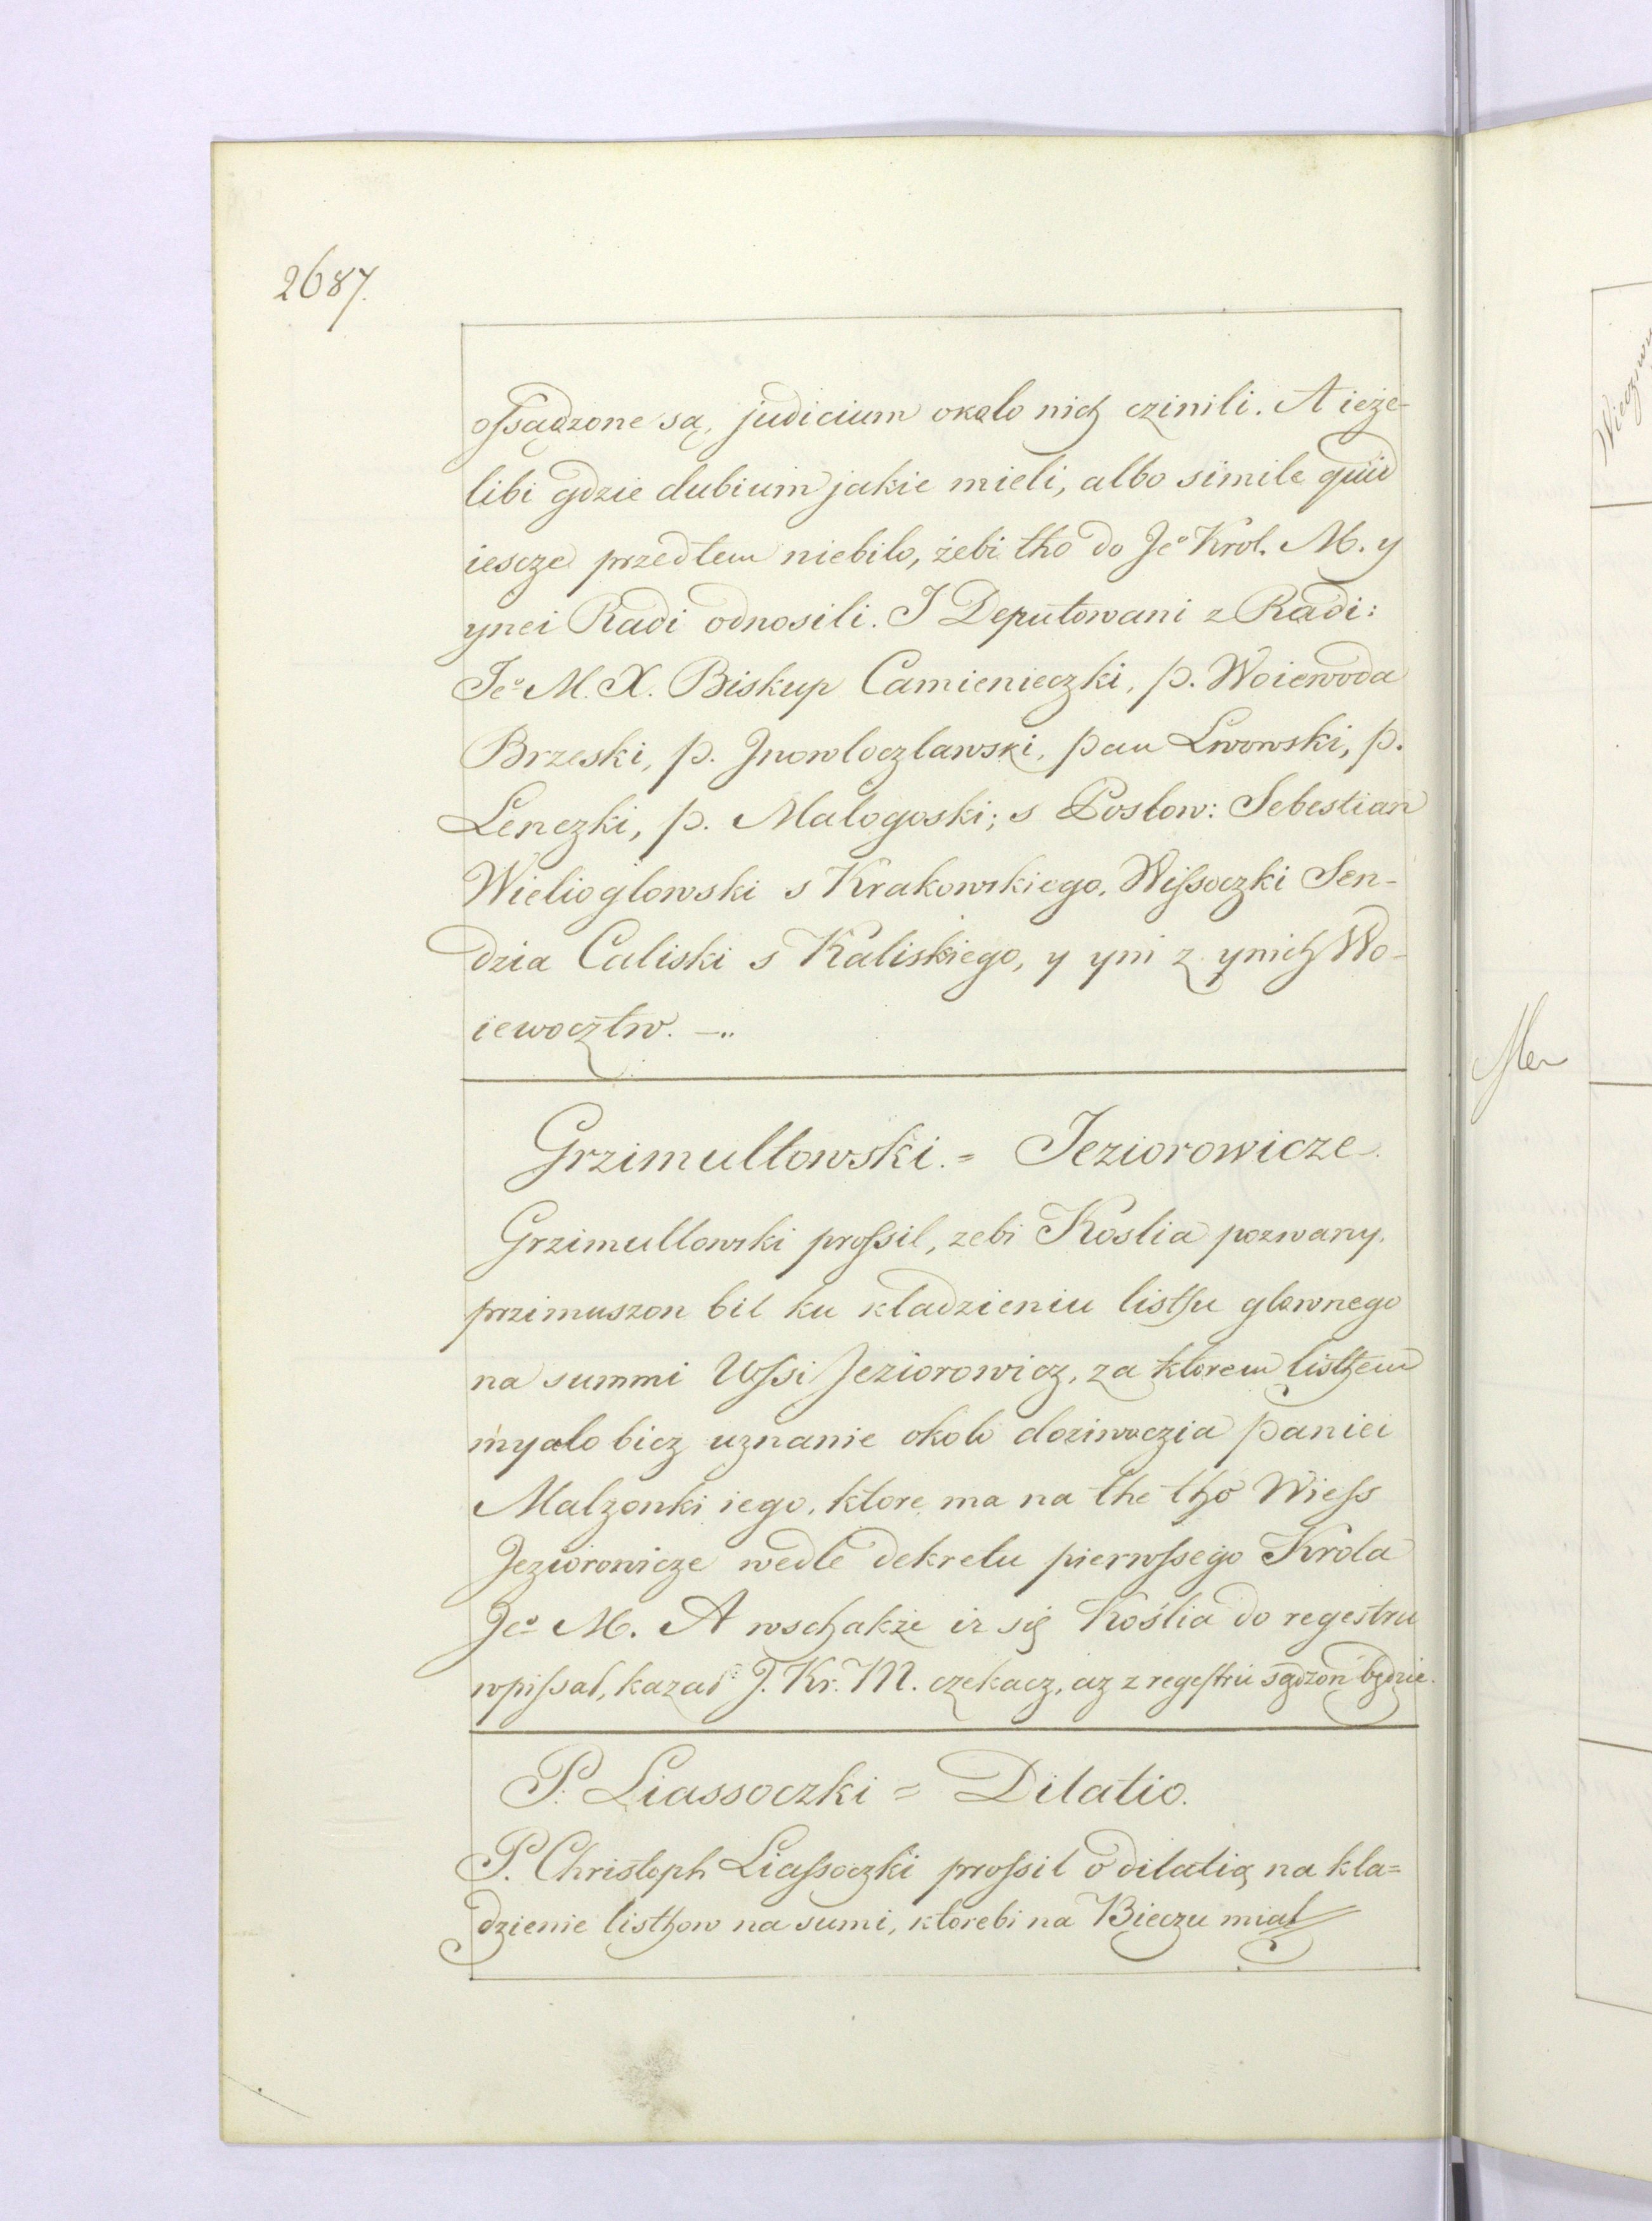 2687.
ofsądzone są, judicium okolo nich czinili. A ieże-
libi gdzie dubium jakie mieli, albo simile quid
iescze przedtem niebilo, żebi tho do Jeº Krol. M. y
ynei Radi odnosili. I Deputowani z Radi:
Jeº M. X. Biskup Camienieczki, p. Woiewoda
Brzeski, p. Jnowloczlawski, pan Lwowski, p.
Lenczki, p. Malogoski; s Posłow: Sebestian
Wielioglowski s Krakowskiego, Wifsoczki Sen-
dzia Caliski s Kaliskiego, y yni z ynich Wo-
iewocztw. —..
Grzimultowski. = Jeziorowicze.
Grzimultowski profsil, zebi Koslia pozwany.
przimuszon bil ku kladzieniu listhu glownego
na summi Wfsi Jeziorowicz, za ktorem listhem
myalo bicz uznanie okolo doziwoczia paniei
Malzonki iego, ktore ma na the tho Wiefs
Jeziorowicze wedle dekretu pierwfsego Krola
Jeº M. A wschakże iz się Koślia do regestru
wpifsal, kazal J. Kr. M. czekacz, az z regestru sądzon będzie.
P. Liassoczki = Dilatio.
P. Christoph Liafsoczki profsil o dilatią na kla=
dzienie listhow na sumi, ktorebi na Bieczu mial
Mer